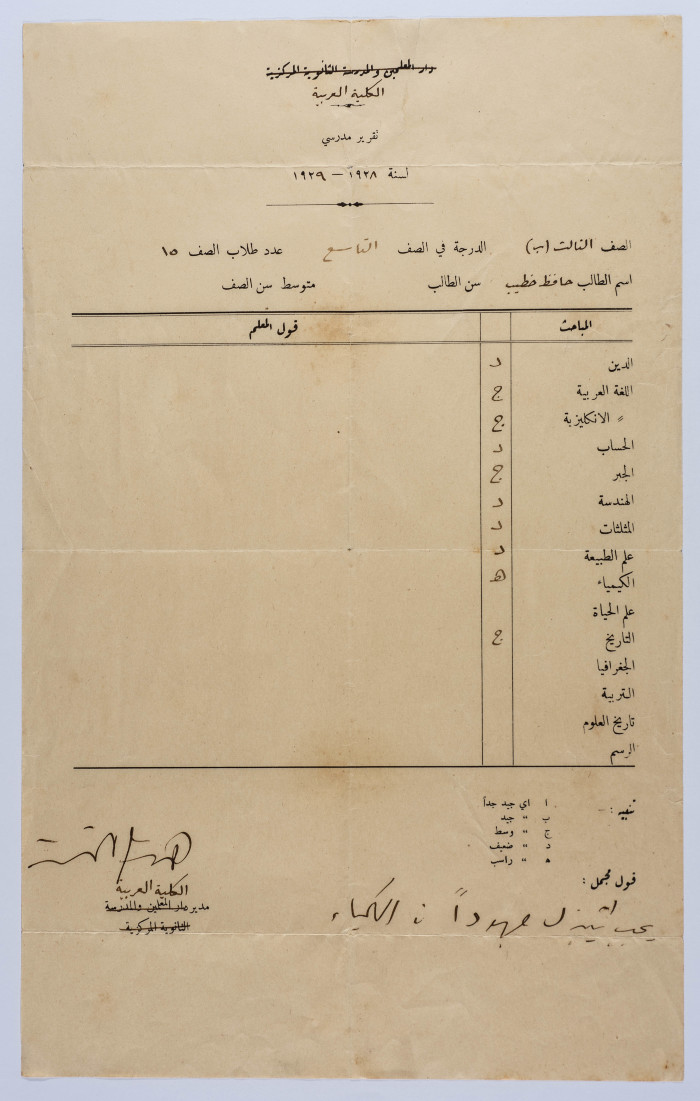 دار المعلمين والمدرسة الثانوية المركزية
الكلية العربية
تقرير مدرسي
لسنة ١٩٢٨ – ١٩٢٩
الصف الثالث (ب) الدرجة في الصف التاسع عدد طلاب الصف ١٥
اسم الطالب حافظ خطيب سن الطالب متوسط سن الصف
المباحث قول المعلم
الدين د
اللغة العربية ج
〃 الانكليزية ج
الحساب د
الجبر ج
الهندسة د
المثلثات د
علم الطبيعة د
الكيمياء ه
علم الحياة
التاريخ ج
الجغرافيا
التربية
تاريخ العلوم
الرسم
تنبيه : – ا اي جيد جداً
ب 〃 جيد
ج 〃 وسط
د 〃 ضعيف
ه 〃 راسب
قول مجمل :
يجب ان يبذل مجهوداً في الكيمياء
الكلية العربية
مدير دار المعلمين والمدرسة
الثانوية المركزية